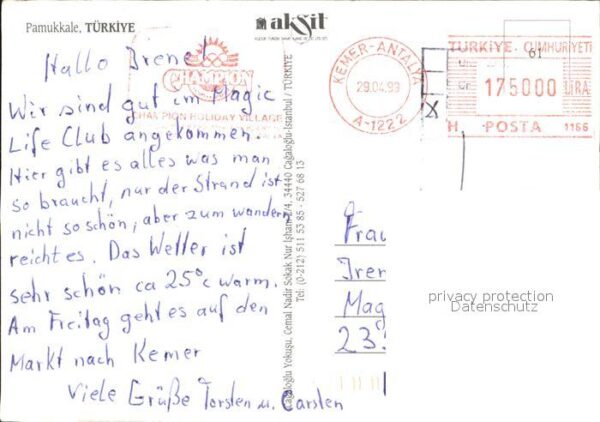 Pamukkale, TÜRKİYE
akşit
Hallo Irene!
CHAMPION
Wir sind gut im Magic
CHAMPION HOLIDAY VILLAGE
Life Club angekommen.
Hier gibt es alles was man
so braucht, nur der Strand ist
nicht so schön, aber zum wandern
reicht es. Das Wetter ist
sehr schön ca 25°c warm.
Am Freitag geht es auf den
Markt nach Kemer
Viele Grüße Torsten u. Carsten
Cağaloğlu Yokuşu, Cemal Nadir Sokak Nur İşhanı 2/4, 34440 Cağaloğlu-İstanbul / TÜRKİYE
Tel: (0-212) 511 53 85 - 527 68 13
KEMER-ANTALYA
29.04.99
A-1222
TÜRKİYE CUMHURİYETİ
61
175000 LİRA
H. POSTA 1166
X
Frau
Iren
Mag
23
privacy protection
Datenschutz